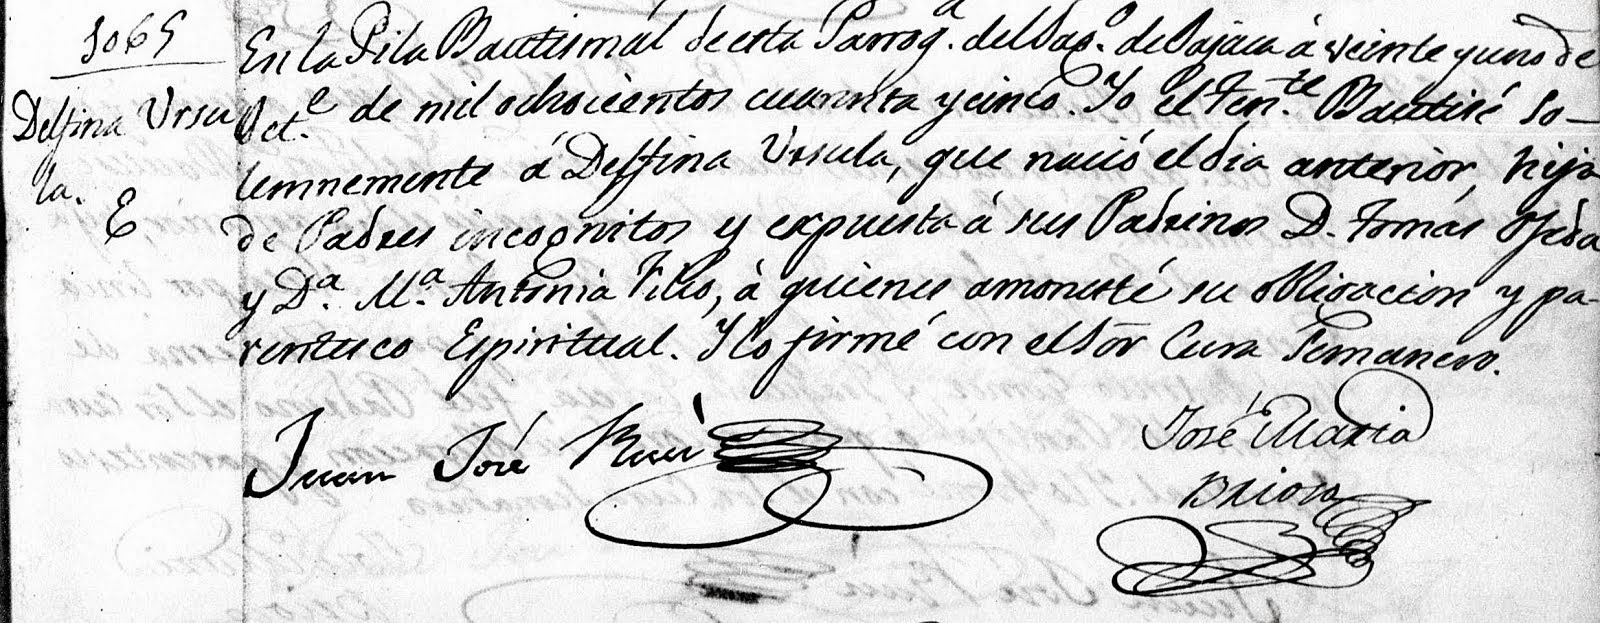 1065
Delfina Ursu
la. E
En la Pila Bautismal de esta Parroqª. del Sagº. de Oajaca á veinte y uno de
Octe. de mil ochocientos cuarenta y cinco. Yo el Tente. Bautisé so-
lemnemente á Delfina Ursula, que nació el dia anterior, hija
de Padres incognitos y expuesta á sus Padrinos D. Tomás Ojeda
y Dª. Mª. Antonia, á quienes amonesté su obligacion y pa-
rentesco Espiritual. Y lo firmé con el Sor Cura Semanero.
Juan José Ruiz
José Maria